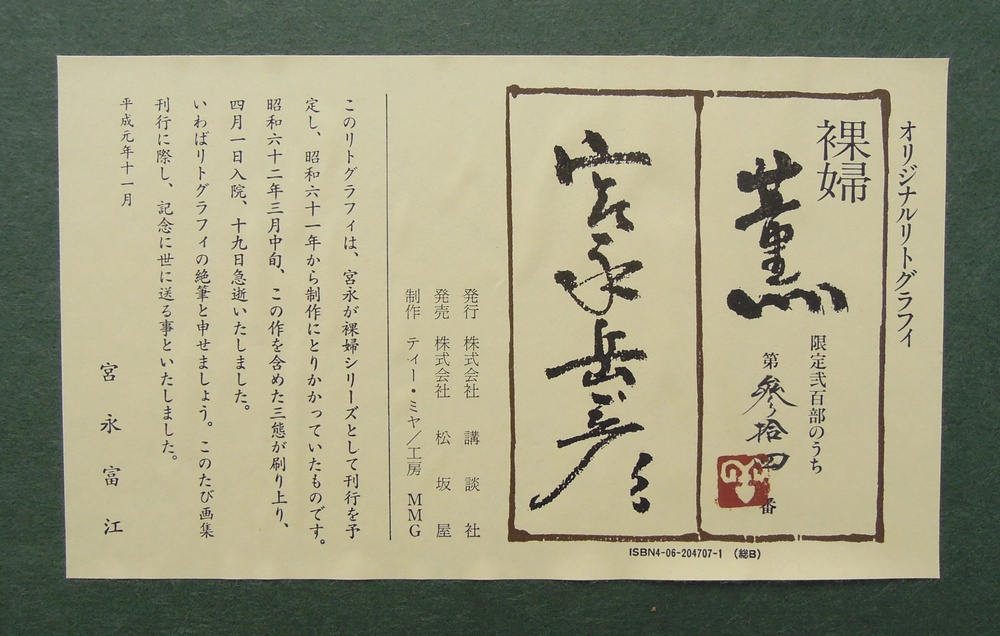 オリジナルリトグラフィ
裸婦
薫
限定弐百部のうち
第参拾四番
宮永岳彦
ISBN4-06-204707-1 (総B)
発行 株式会社 講談社
発売 株式会社 松坂屋
制作 ティー・ミヤ/工房 MMG
このリトグラフィは、宮永が裸婦シリーズとして刊行を予
定し、昭和六十一年から制作にとりかかっていたものです。
昭和六十二年三月中旬、この作を含めた三態が刷り上り、
四月一日入院、十九日急逝いたしました。
いわばリトグラフィの絶筆と申せましょう。このたび画集
刊行に際し、記念に世に送る事といたしました。
平成元年十一月
宮永富江